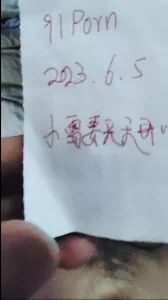 91Porn
2023.6.5
小需要天天开